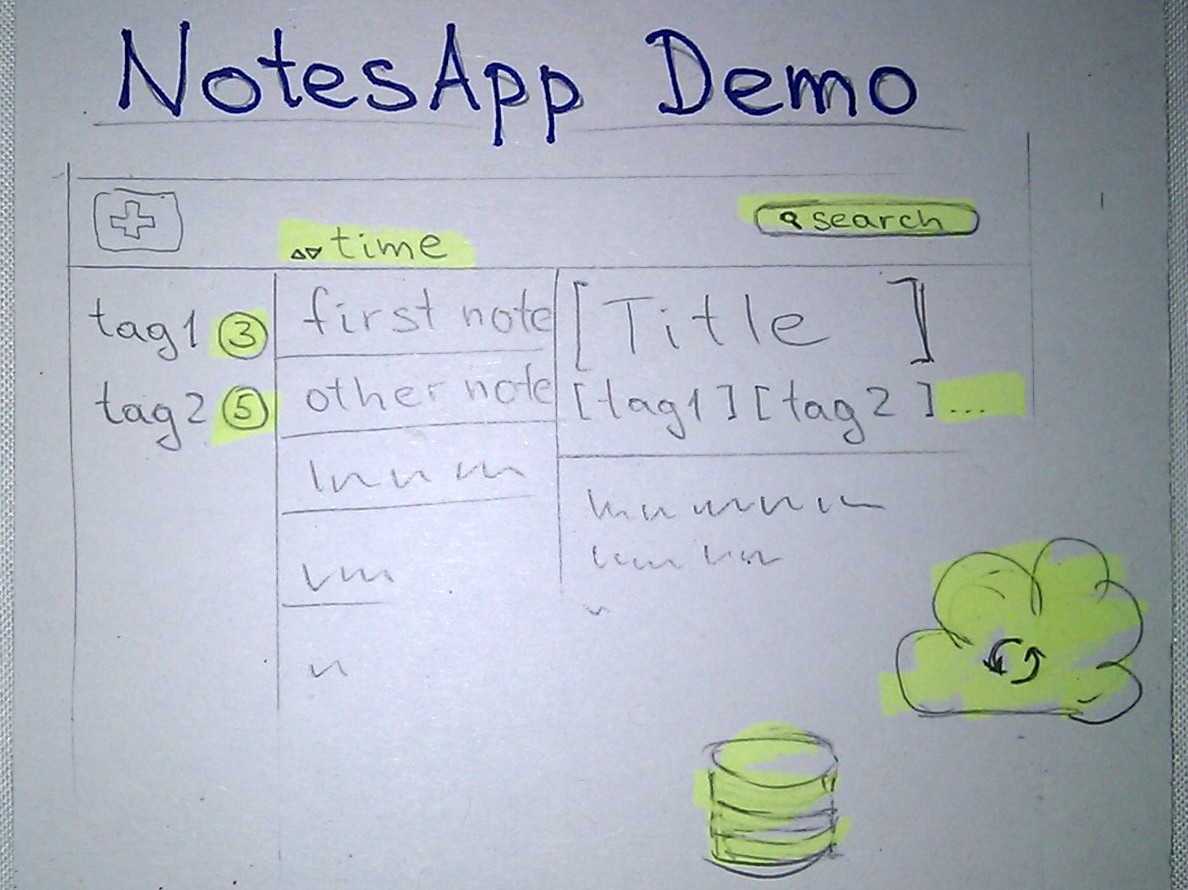 NotesApp Demo
time
search
tag1 3
tag2 5
first note
other note
[Title]
[tag1][tag2]...